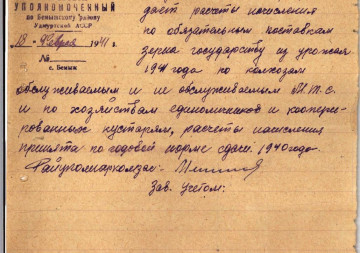 УПОЛНОМОЧЕННЫЙ
по Бемыжскому району
Удмуртской АССР
18 февраля 1941 г.
№
с. Бемыж
дает расчеты исчисления
по обязательным поставкам
зерна государству из урожая
1941 года по колхозам
обслуживаемым и не обслуживаемым М.Т.С.
и по хозяйствам единоличников и коопери-
рованных кустарям, расчеты исчисления
принята по годовой норме сдачи 1940 года.
Райуполнаркомзаг:-
Зав. учетом: